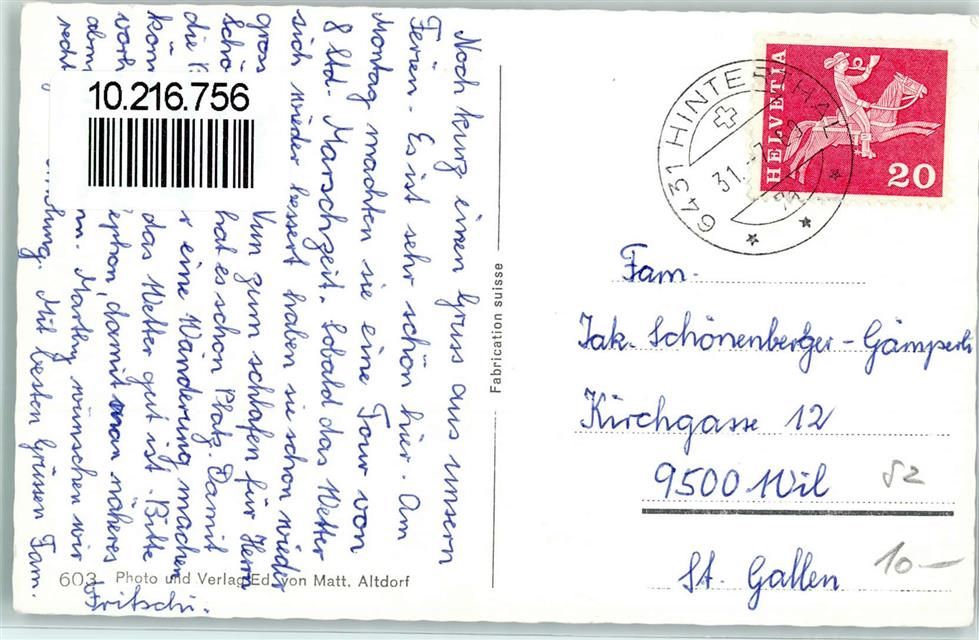 Noch kurz einen Gruss aus unsern
Ferien. Es ist sehr schön hier. Am
Montag machten sie eine Tour von
8 Std. Marschzeit. Sobald das Wetter
sich wieder bessert haben sie schon wieder
gross Vun zum schlafen für Herrn
schö hat es schon Platz. Damit
die r eine Wanderung machen
kön das Wetter gut ist. Bitte
vorh ephon, damit man näheres
abm nn. Marthy wünschen wir
recht Mit besten Grüssen Fam.
Fritschi.
10.216.756
603 Photo und Verlag Ed. von Matt. Altdorf
Fabrication suisse
HELVETIA
20
6431 HINTERTHAL
31.
Fam.
Jak. Schönenberger-Gämperli
Kirchgasse 12
9500 Wil
St. Gallen
82
10.—